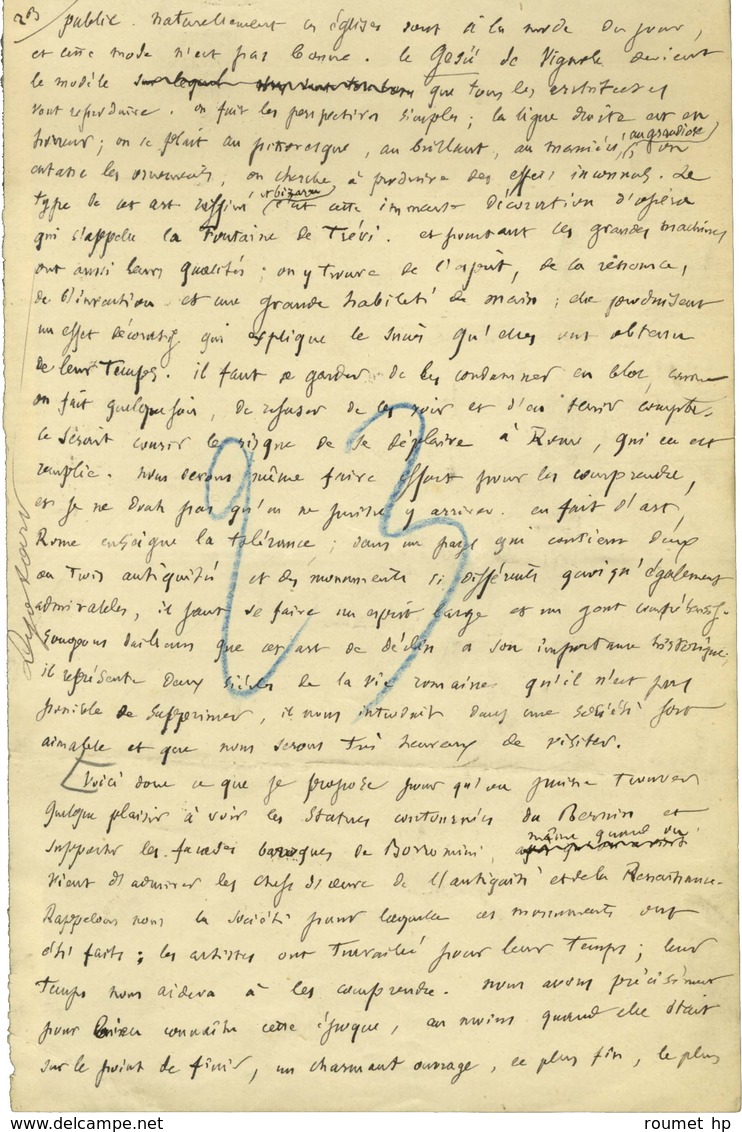 203
public. naturellement ces églises sont à la mode du jour,
et cette mode n'est pas bonne. le Gesù de Vignole devient
le modèle sur lequel que tous les architectes
vont reproduire. on fuit les perspectives simples ; la ligne droite est en
horreur ; on se plait au pittoresque, au brillant, au maniéré, au grandiose ; on
entasse les ornements, on cherche à produire des effets inconnus. Le
type de cet art raffiné et bizarre c'est cette immense décoration d'opéra
qui s'appelle la Fontaine de Trévi. et pourtant ces grandes machines
ont aussi leurs qualités ; on y trouve de l'esprit, de la ressource,
de l'invention et une grande habileté de main ; elles produisent
un effet décoratif qui explique le succès qu'elles ont obtenu
de leur temps. il faut se garder de les condamner en bloc, comme
on fait quelquefois, de refuser de les voir et d'en tenir compte.
ce serait courir le risque de se déplaire à Rome, qui en est
remplie. nous devons même faire effort pour les comprendre,
et je ne doute pas qu'on ne puisse y arriver. en fait d'art,
Rome enseigne la tolérance ; dans un pays qui contient deux
ou trois antiquités et des monuments si différents quoiqu'également
admirables, il faut se faire un esprit large et un gout compréhensif.
Songeons d'ailleurs que cet art de déclin a son importance historique,
il représente deux siècles de la vie romaine qu'il n'est pas
possible de supprimer, il nous introduit dans une société fort
aimable et que nous serons très heureux de visiter.
[Voici donc ce que je propose pour qu'on puisse trouver
quelque plaisir à voir les statues contournées du Bernin et
supporter les façades baroques de Borromini, même quand on
vient d'admirer les chefs d'œuvre de l'antiquité et de la Renaissance.
Rappelons nous la société pour laquelle ces monuments ont
été faits ; les artistes ont travaillé pour leur temps ; leur
temps nous aidera à les comprendre. nous avons précisément
pour bien connaître cette époque, au moins quand elle était
sur le point de finir, un charmant ouvrage, le plus fin, le plus
23
roumet hp